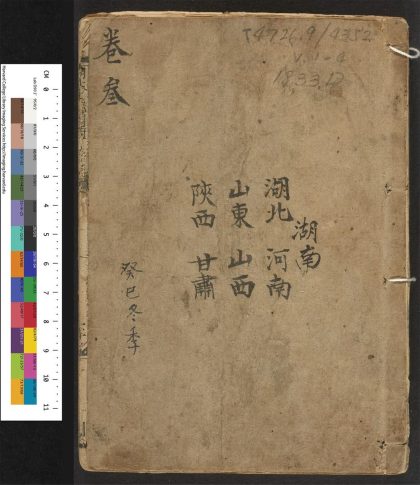 卷叁
T4726.9/4352
v.1-4
1833.12
湖南
湖北 河南
山東 山西
陝西 甘肅
癸巳冬季
CM 0 1 2 3 4 5 6 7 8 9 10 11
Harvard College Library Imaging Services